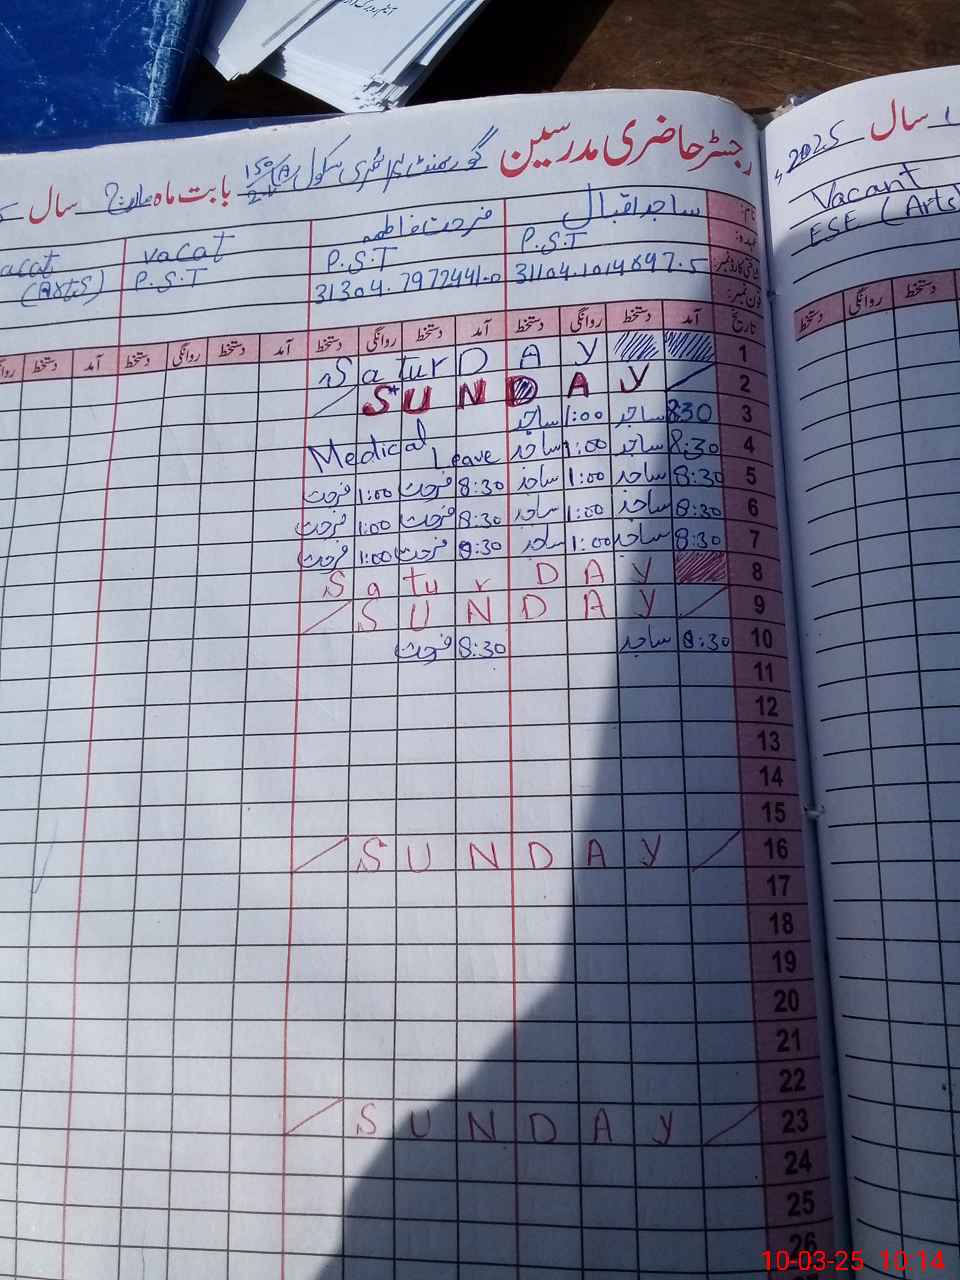 رجسٹر حاضری مدرسین گورنمنٹ پرائمری سکول 150/A بابت ماہ مارچ سال
سال 2025
نام:
ساجد اقبال
فرحت فاطمہ
vacat
acat
Vacant
عہدہ:
P.S.T
P.S.T
P.S.T
(Arts)
ESE (Arts)
شناختی کارڈ نمبر:
31304.7972441-0
فون نمبر:
تاریخ آمد دستخط روانگی دستخط آمد دستخط روانگی دستخط آمد دستخط روانگی دستخط آمد دستخط
دستخط روانگی دستخط
1 SaturDAY
2 SUNDAY
3 830 ساجد 1:00 ساجد
4 8:30 ساجد 1:00 ساجد Medical Leave
5 8:30 ساجد 1:00 ساجد 8:30 فرحت 1:00 فرحت
6 8:30 ساجد 1:00 ساجد 8:30 فرحت 1:00 فرحت
7 8:30 ساجد 1:00 ساجد 8:30 فرحت 1:00 فرحت
8 SaturDAY
9 SUNDAY
10 8:30 ساجد 8:30 فرحت
11
12
13
14
15
16 SUNDAY
17
18
19
20
21
22
23 SUNDAY
24
25
26
10-03-25 10:14